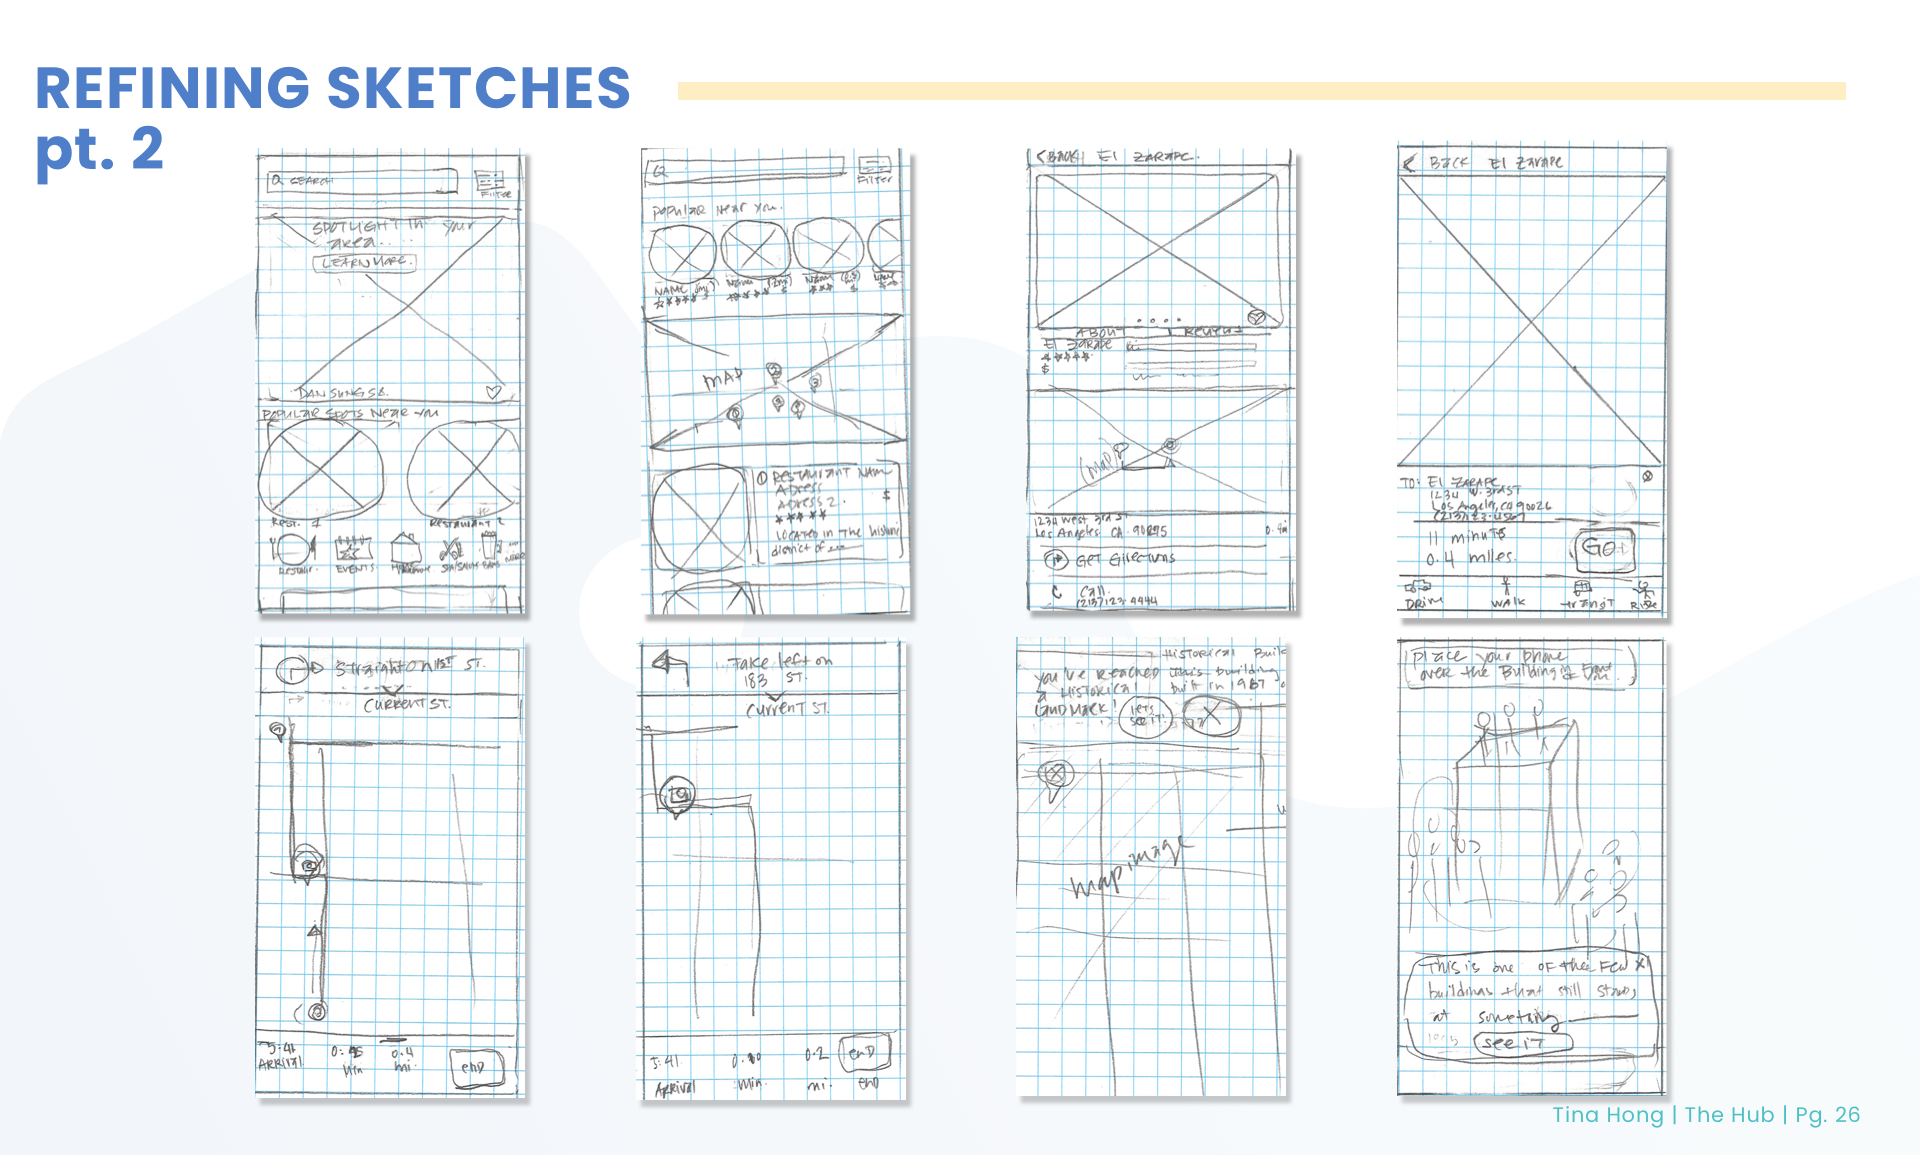 REFINING SKETCHES
pt. 2
SEARCH
Filter
SPOTLIGHT in your
area...
LEARN MORE.
POPULAR SPOTS Near you
Rest. 1
RESTAURANT 2
Restaur.
EVENTS
BARS
Filter
Popular Near you.
NAME
MAP
RESTAURANT NAME
Adress
Adress 2.
$
LOCATED in The histori
district of
< BACK El ZARAPE.
ABOUT
Reviews
El ZaRAPE
$
(map)
1234 West 3rd St
Los Angeles CA. 90295
GET Directions
Call.
(213)123-4444
< Back El Zarape
TO: El ZARAPE
1234 W. 3rd ST
Los Angeles, CA 90026
11 minuts
0.4 miles.
GO
DRIVE
WALK
TranSiT
RIDE
Straight on 1ST ST.
CURRENT ST.
5:41
ARRIVAL
0:45
Min
0.4
mi.
end
Take left on
183 ST.
Current ST.
5:41
Arrival
min.
0.2
mi.
enD
end
Historical Buil
You've Reached
a Historical
landmark!
this building
built in 1987
let's
see it!
map image
place your phone
over the Building in Front
of You.
This is one of thee Few X
buildings that still stands
at something
see iT
Tina Hong | The Hub | Pg. 26